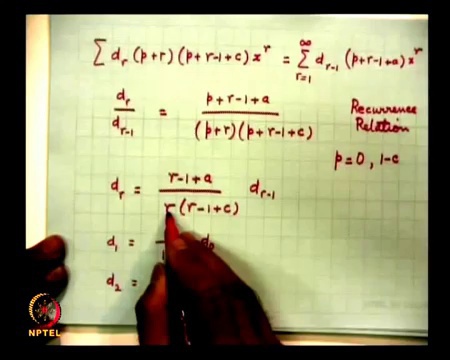 ∑ d_r (p+r) (p+r-1+c) x^r = ∑_{r=1}^{∞} d_{r-1} (p+r-1+a) x^r
d_r / d_{r-1} = (p+r-1+a) / ((p+r) (p+r-1+c))
Recurrence
Relation
p=0, 1-c
d_r = (r-1+a) / (r (r-1+c)) d_{r-1}
d_1 = d_0
d_2 =
NPTEL